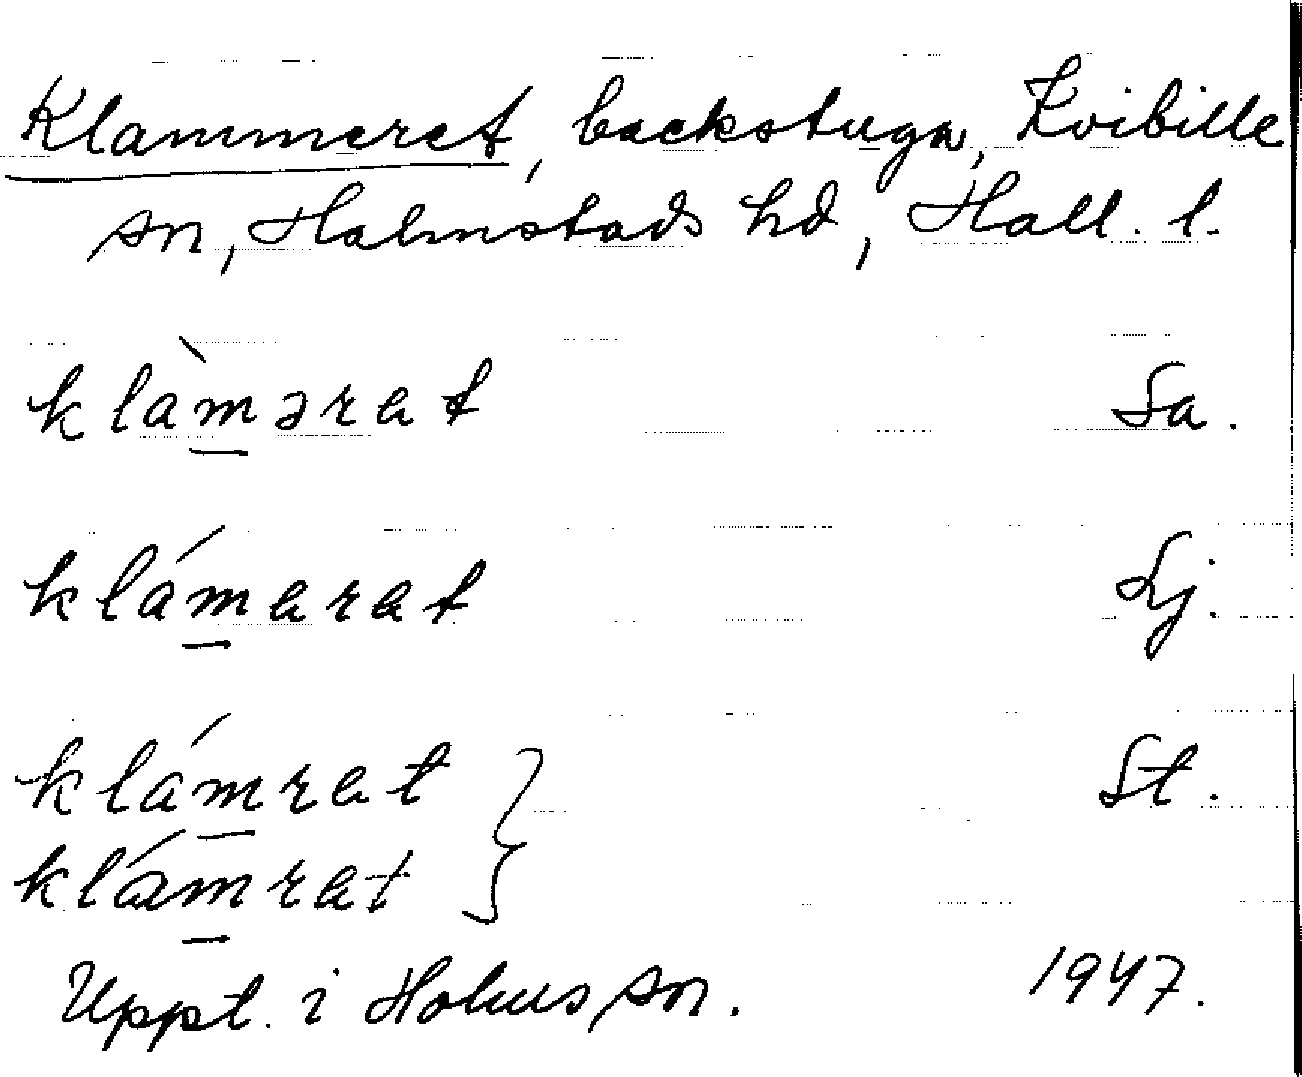 Klammeret, backstuga, Kvibille
sn, Halmstads hd, Hall. l.
klàm̲ərat Sa.
klám̲arat Lj.
klám̲rat } St.
klám̲rat
Uppt. i Holms sn. 1947.